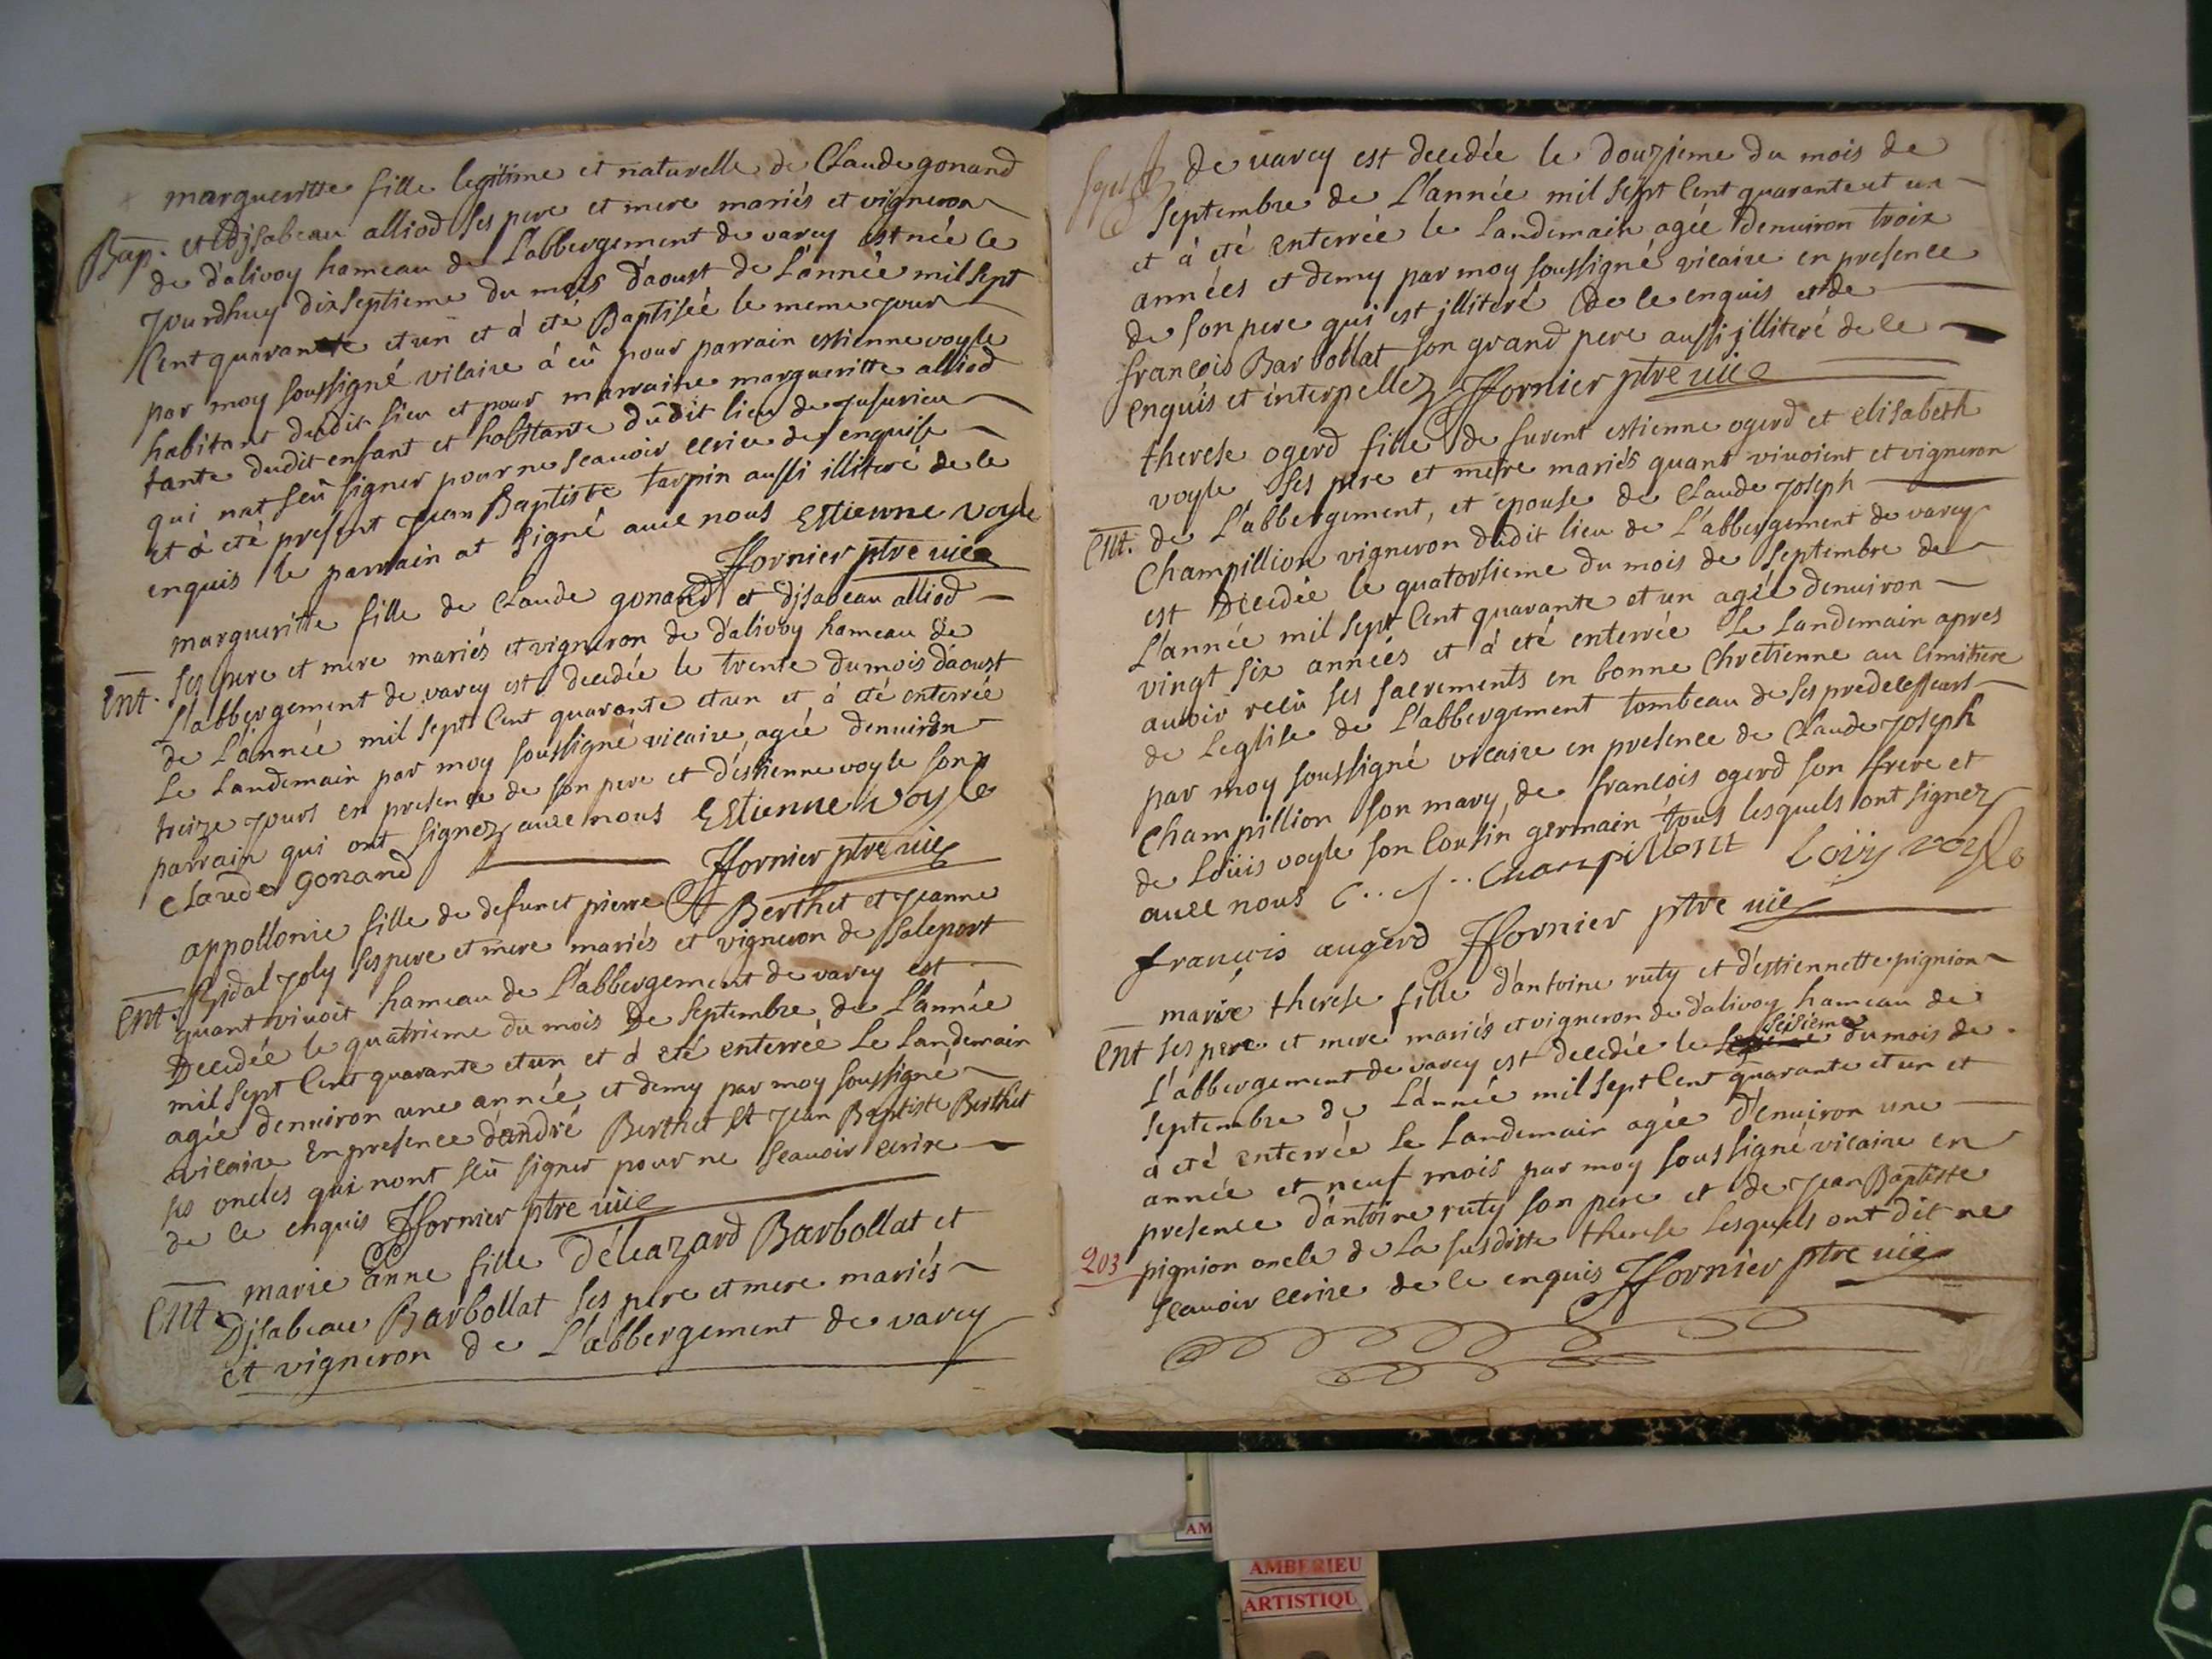 margueritte fille legitime et naturelle de Claude gonand
Bap. et Djsabeau alliod ses pere et mere mariés et vigneron
de dalivoy hameau de L'abbergement de varey est née ce
Jourdhuy dix septieme du mois d'aoust de L'année mil sept
Cent quarante et un et à eté Baptisée le meme jour
par moy soussigné vicaire à eû pour parrain estienne voyle
habitant dudit lieu et pour marraine margueritte alliod
tante dudit enfant et habitante dudit lieu de Jusurieu
qui nat seû signer pour ne scauoir ecrire de enquise
et à eté present jean Baptiste tarpin aussi illiteré de ce
enquis le parrain at signé auec nous Estienne voyle
ffornier ptre vic
margueritte fille de Claude gonand et Djsabeau alliod
Ent. ses pere et mere mariés et vigneron de dalivoy hameau de
L'abbergement de varey est decedée le trente du mois d'aoust
de L'année mil sept Cent quarante et un et à eté enterrée
Le Landemain par moy soussigné vicaire agée denuiron
treize jours en presence de son pere et d'estienne voyle son
parrain qui ont signez auec nous Estienne voyle
claude gonand ffornier ptre vic
appollonie fille de defunct pierre Berthet et jeanne
Ent. Vidal joly ses pere et mere mariés et vigneron de Saleport
quant viuoit hameau de L'abbergement de varey est
Decedée le quatrieme du mois De Septembre de L'année
mil sept Cent quarante et un et à eté enterrée Le Landemain
agée denuiron une année et demy par moy soussigné
vicaire En presence d'andré Berthet et Jean Baptiste Berthet
ses oncles qui nont seû signer pour ne scauoir ecrire
de ce enquis ffornier ptre vic
marie anne fille d'éleazard Barbollat et
Ent. Djsabeau Barbollat ses pere et mere mariés
et vigneron de L'abbergement de varey
de varey est decedée le douzieme du mois de
Septembre de L'année mil sept Cent quarante et un
et à eté enterrée le Landemain agée denuiron trois
années et demy par moy soussigné vicaire en presence
de son pere qui est jlliteré de ce enquis et de
francois Barbollat son grand pere aussi jlliteré de ce
enquis et interpellez ffornier ptre vic
therese ogerd fille de furent estienne ogerd et elisabeth
voyle ses pere et mere mariés quant viuoient et vigneron
Ent. de L'abbergement, et epouse de Claude Joseph
Champillion vigneron dudit lieu de L'abbergement de varey
est Decedée le quatorsieme du mois de Septembre de
L'année mil sept Cent quarante et un agée denuiron
vingt six années et à eté enterrée Le Landemain apres
auoir reçû ses sacrements en bonne Chretienne au Cimitiere
de Leglise de L'abbergement tombeau de ses predecesseurs
par moy soussigné vicaire en presence de Claude Joseph
Champillion son mary, de francois ogerd son frere et
de Loüis voyle son Cousin germain tous lesquels ont signez
auec nous C. J. Champillont Loüy voyle
francois augerd ffornier ptre vic
marie therese fille d'antoine ruty et d'estiennette pignion
Ent ses pere et mere mariés et vigneron de dalivoy hameau de
L'abbergement de varey est decedée le seisieme du mois de
Septembre de L'année mil sept Cent quarante et un et
à eté enterrée Le Landemain agée d'enuiron une
année et neuf mois par moy soussigné vicaire en
presence d'antoine ruty son pere et de Jean Baptiste
203 pignion oncle de La susditte therese Lesquels ont dit ne
scauoir ecrire de ce enquis ffornier ptre vic
AMBERIEU
ARTISTIQU